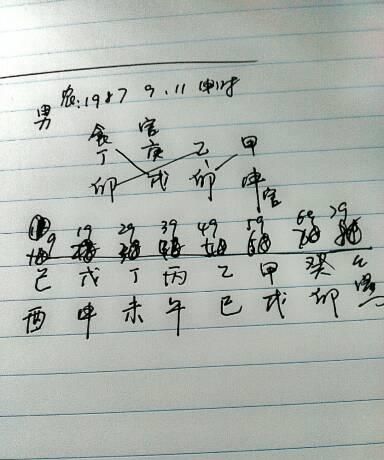 男 农:1987 9.11 申时
食 官
丁 庚 乙 甲
卯 戌 卯 申 官
9 19 29 39 49 59 69 79
己 戊 丁 丙 乙 甲 癸
酉 申 未 午 巳 戌 卯